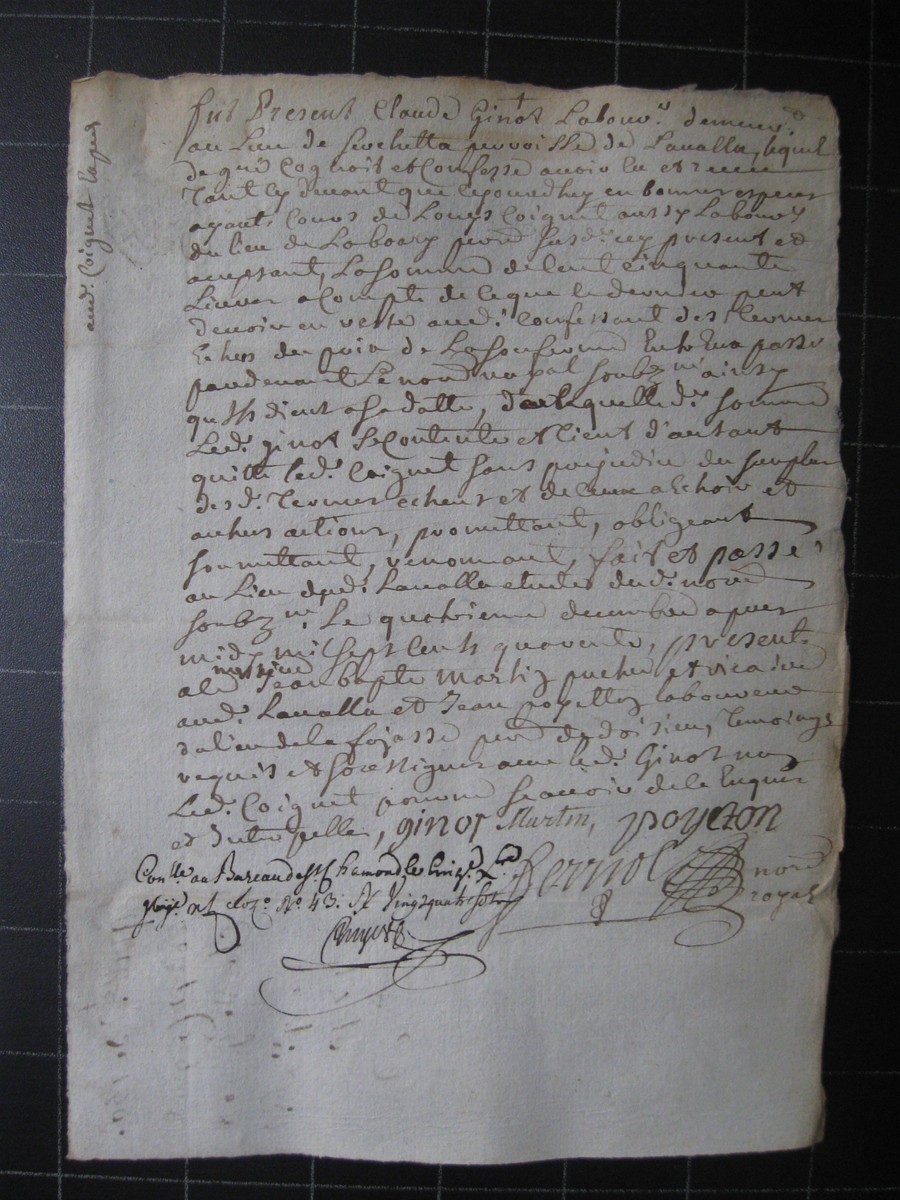 fut Present Claude Ginot Labour. demeur.
au Lieu de Sevchetta parroisse de Lavalla, lequel
de gré Cognoit et Confesse avoir eu et receu
Tant cy devant que cejourdhuy en bonnes especes
ayant Cours de Louys Coignet aussy Labour
du lieu de Laboary parr. susd. icy present et
acceptant, La somme de Cent Cinquante
Livres a Compte de ce que le dernier peut
devoir en reste aud. Confessant des Termes
Echus du prix de La sousferme Entr'Eux passé
pardevant Le no.re royal soubz.né ainsy
qu'Ils dient a sa datte, de laquelle d. somme
Led. Ginot se Contente et tient d'autant
quitte led. Coignet sans prejudice du surplus
des d. Termes echeus et de Ceux a Echoir et
autres actions, promettant, obligeant
soumettant, renonceant, fait et passé
au Lieu dud. Lavalla etude dud. no.re
soubz.né Le quatrieme decembre apres
midy mil sept cents quarante, presents
messire
Jean bapte Martin prestre et vicaire
aud. Lavalla et Jean poyetton laboureur
du lieu de la fojasse parr. de doisieu, Temoings
requis et soussignes avec led. Ginot non
Led. Coignet pour ne sçavoir de ce Enquis
et Interpellé, ginot Martin, poyeton
Con.lle au Bureau de St Chamond le Cinq. X.bre
N.º 43. R. Vingt quatre sols
no.re
royal
aud. Coignet